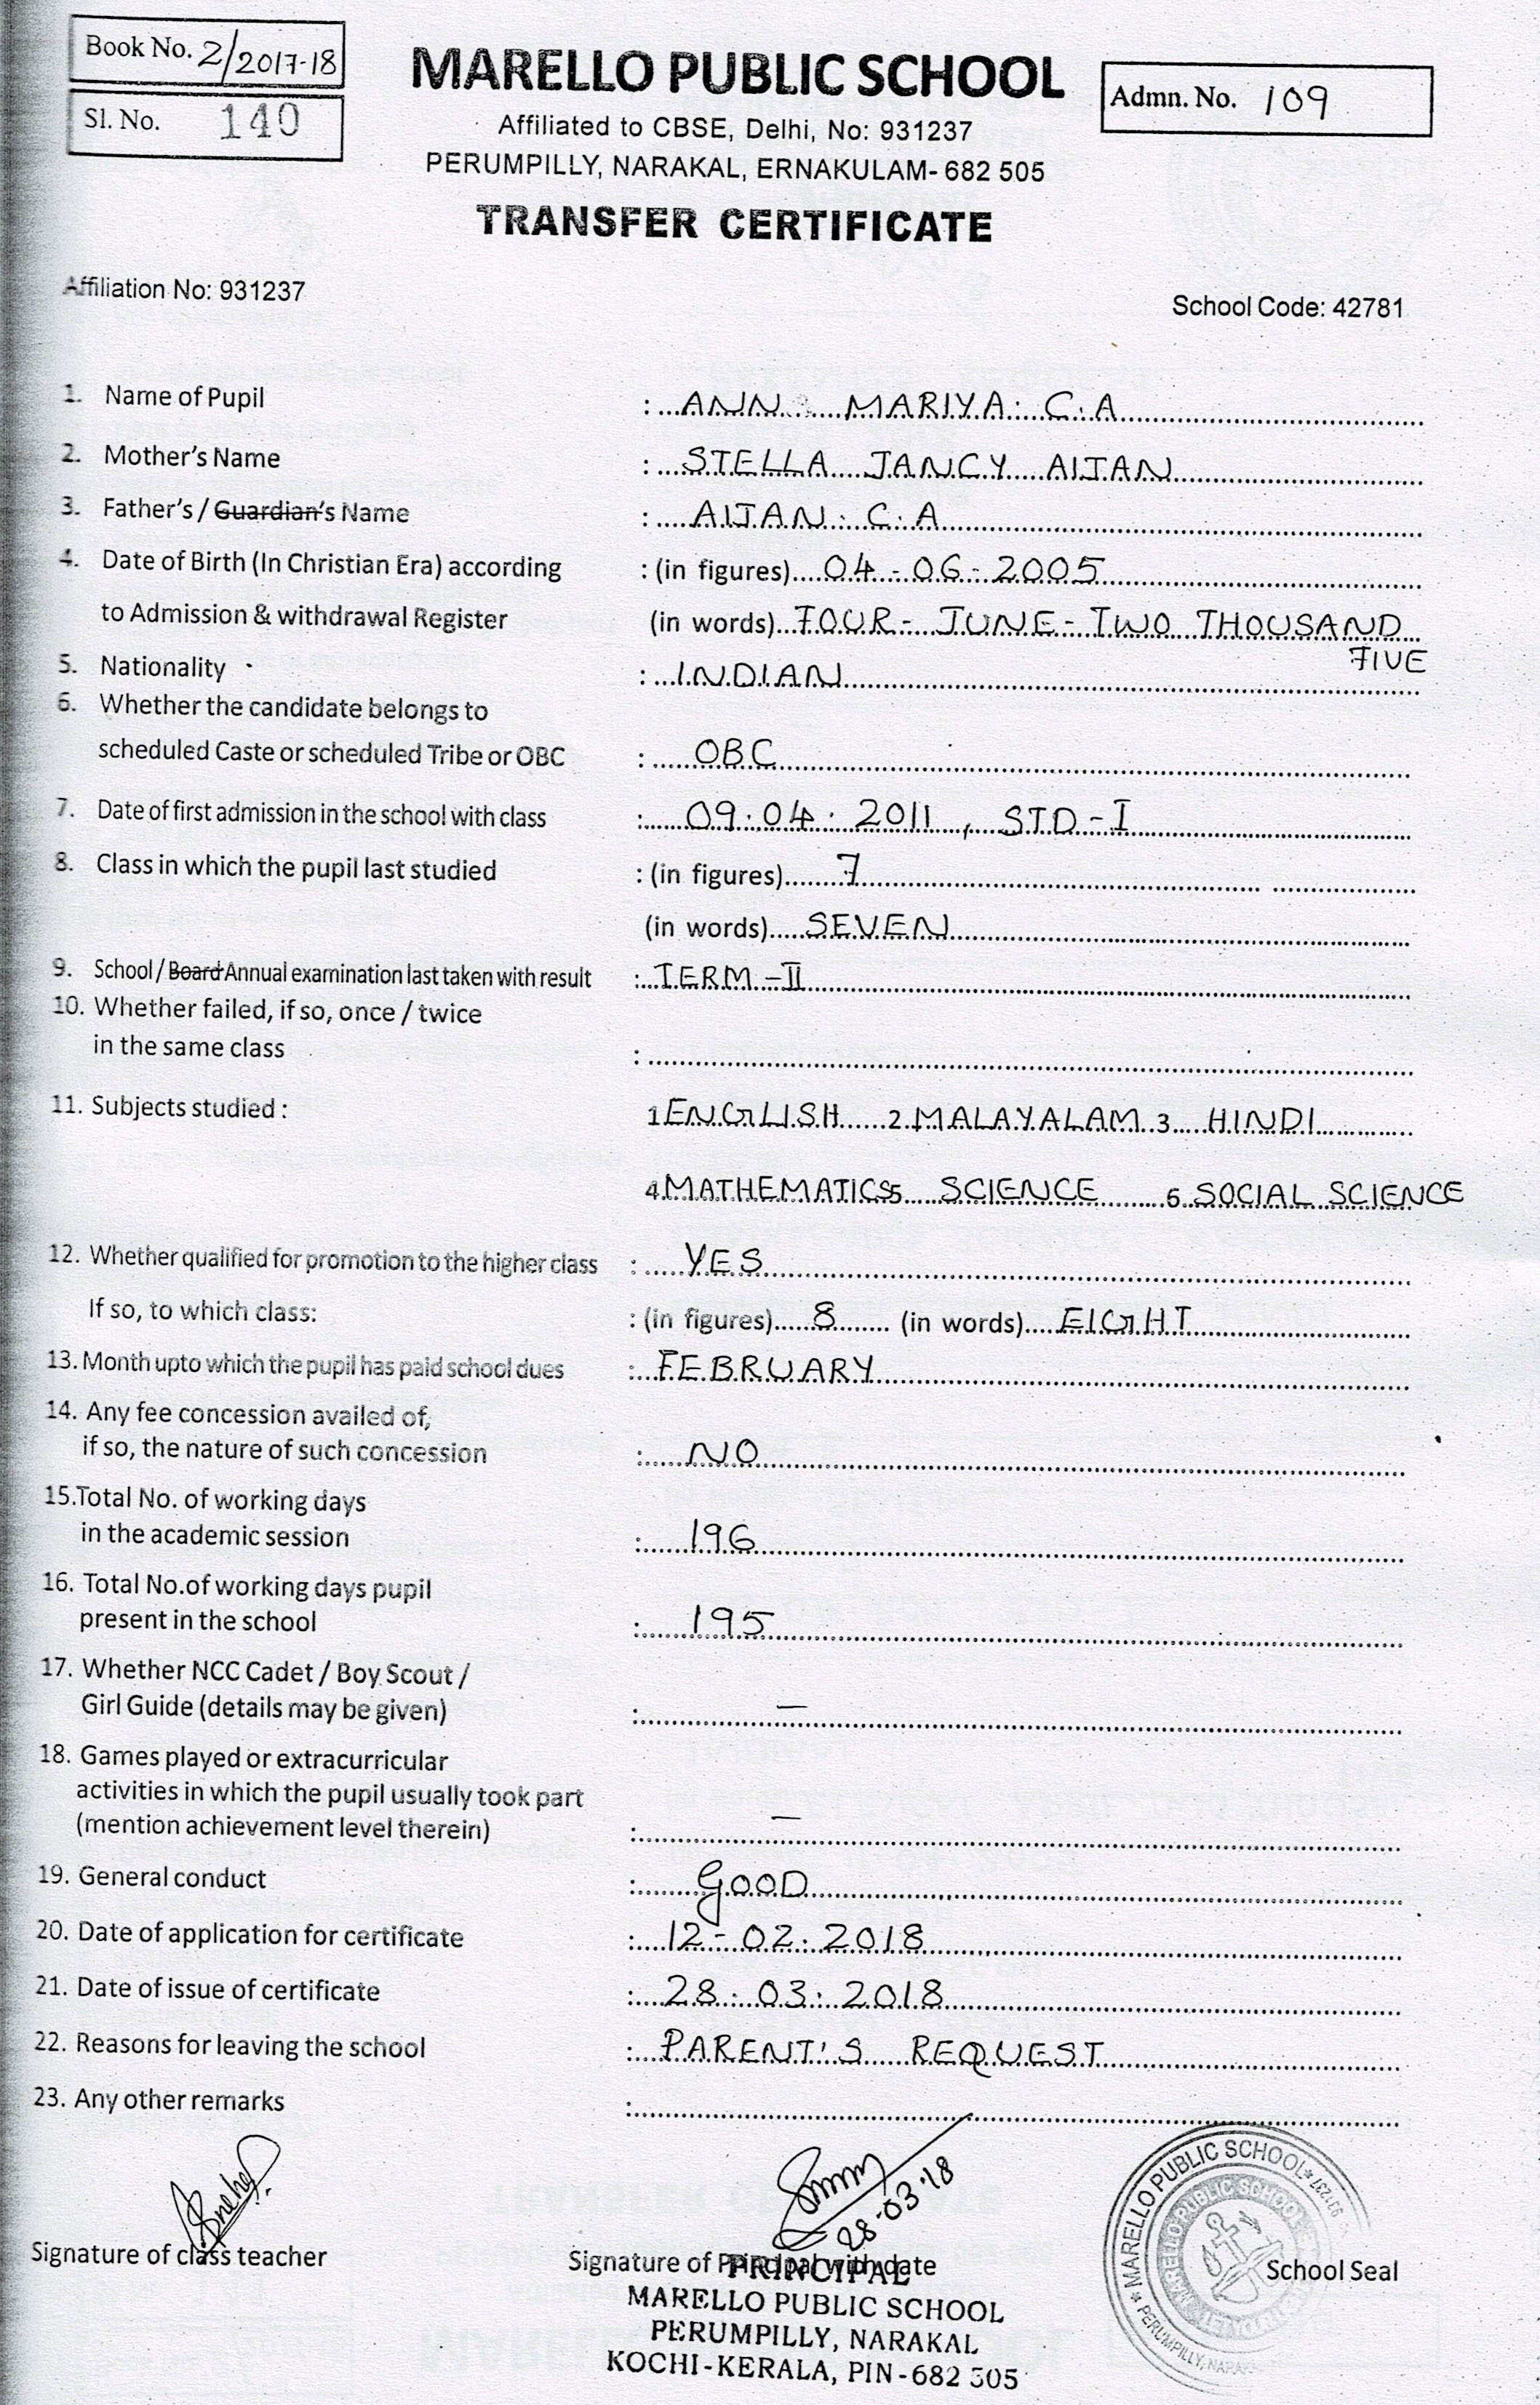 Book No. 2/2017-18
Sl. No. 140
MARELLO PUBLIC SCHOOL
Admn. No. 109
Affiliated to CBSE, Delhi, No: 931237
PERUMPILLY, NARAKAL, ERNAKULAM- 682 505
TRANSFER CERTIFICATE
Affiliation No: 931237
School Code: 42781
1. Name of Pupil : ANN MARIYA. C. A
2. Mother's Name : STELLA JANCY AIJAN
3. Father's / Guardian's Name : AIJAN. C. A
4. Date of Birth (In Christian Era) according : (in figures) 04-06-2005
to Admission & withdrawal Register (in words) FOUR- JUNE- TWO THOUSAND
FIVE
5. Nationality : INDIAN
6. Whether the candidate belongs to
scheduled Caste or scheduled Tribe or OBC : OBC
7. Date of first admission in the school with class : 09.04.2011, STD-I
8. Class in which the pupil last studied : (in figures) 7
(in words) SEVEN
9. School / Board Annual examination last taken with result : TERM-II
10. Whether failed, if so, once / twice
in the same class :
11. Subjects studied : 1 ENGLISH 2. MALAYALAM 3 HINDI
4. MATHEMATICS 5 SCIENCE 6. SOCIAL SCIENCE
12. Whether qualified for promotion to the higher class : YES
If so, to which class: : (in figures) 8 (in words) EIGHT
13. Month upto which the pupil has paid school dues : FEBRUARY
14. Any fee concession availed of,
if so, the nature of such concession : NO
15. Total No. of working days
in the academic session : 196
16. Total No.of working days pupil
present in the school : 195
17. Whether NCC Cadet / Boy Scout /
Girl Guide (details may be given) : —
18. Games played or extracurricular
activities in which the pupil usually took part
(mention achievement level therein) : —
19. General conduct : GOOD
20. Date of application for certificate : 12-02.2018
21. Date of issue of certificate : 28.03.2018
22. Reasons for leaving the school : PARENT'S REQUEST
23. Any other remarks :
28.03.18
Signature of class teacher
Signature of Principal with date
School Seal
PRINCIPAL
MARELLO PUBLIC SCHOOL
PERUMPILLY, NARAKAL
KOCHI-KERALA, PIN-682 505
MARELLO PUBLIC SCHOOL * 931237
* PERUMPILLY, NARAKAL
MARELLO PUBLIC SCHOOL